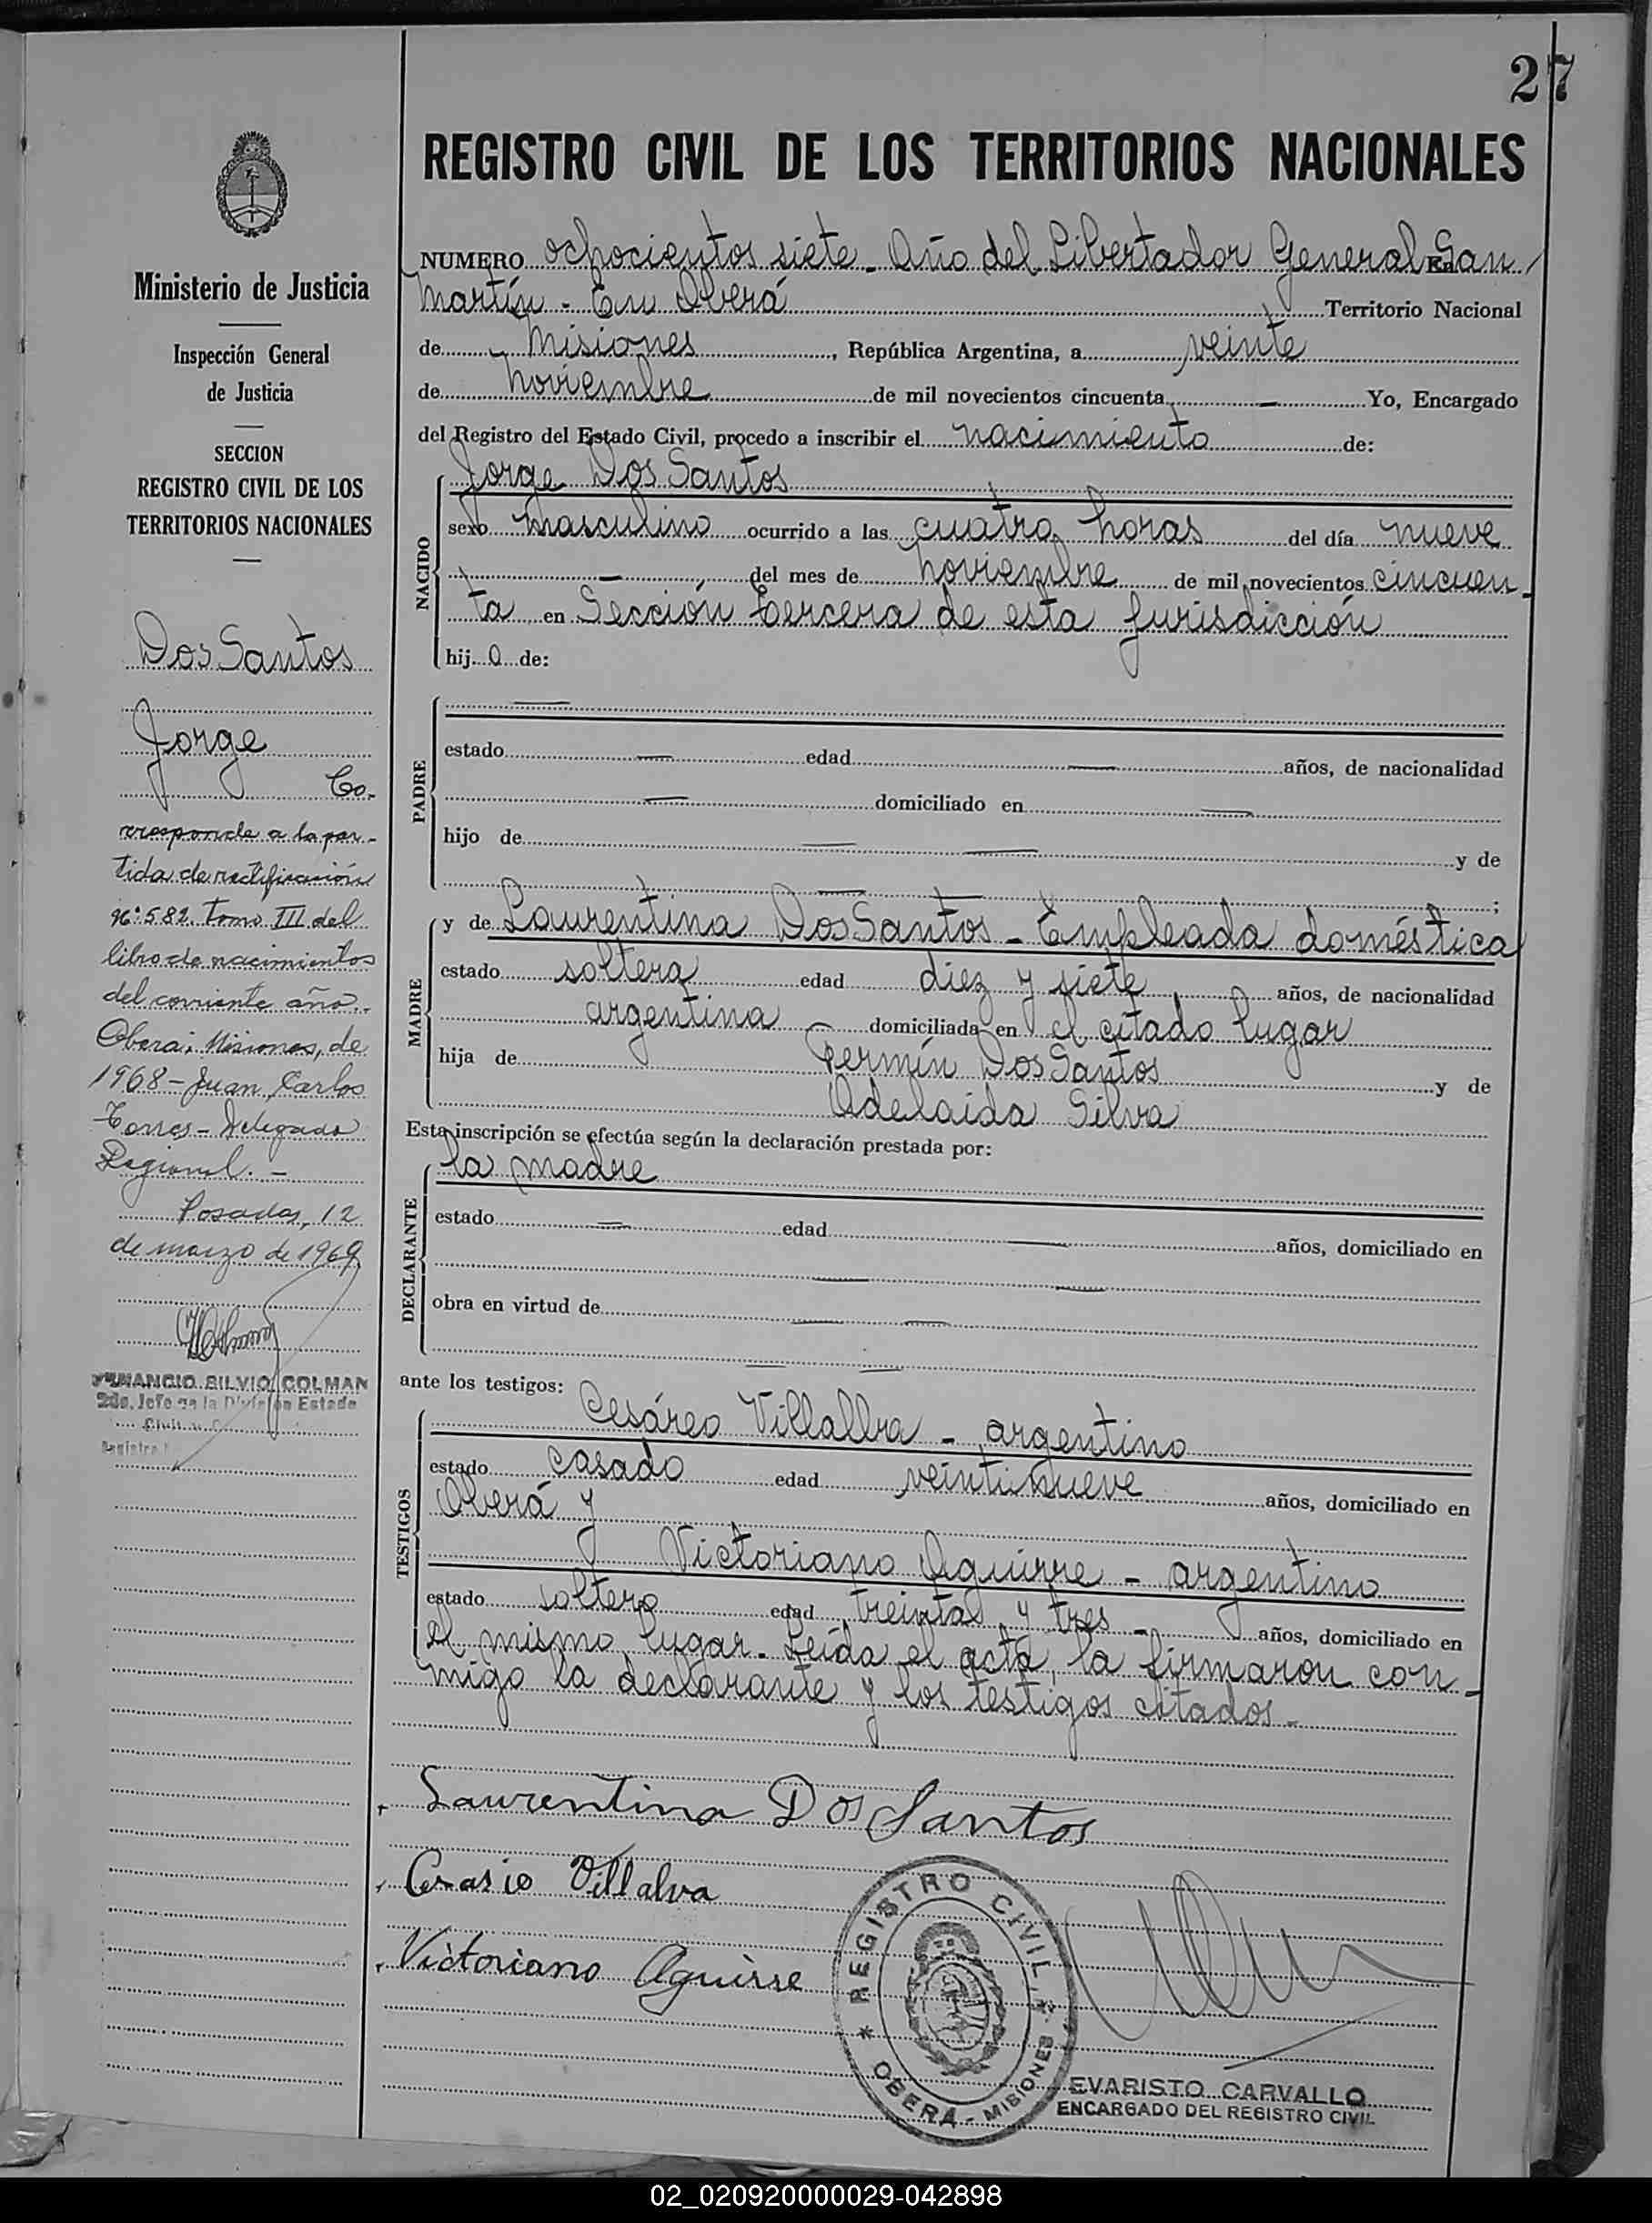 27
REGISTRO CIVIL DE LOS TERRITORIOS NACIONALES
Ministerio de Justicia
Inspección General
de Justicia
SECCION
REGISTRO CIVIL DE LOS
TERRITORIOS NACIONALES
Dos Santos
Jorge
Co-
rresponde a la par-
tida de rectificación
Nº 582. Tomo III del
libro de nacimientos
del corriente año.-
Oberá, Misiones, de
1968 - Juan Carlos
Torres - Delegado
Regional. -
Posadas, 12
de marzo de 1969
VENANCIO SILVIO COLMAN
2do. Jefe de la División Estado
Civil
Registro
NUMERO ochocientos siete - Año del Libertador General En San
Martín - En Oberá Territorio Nacional
de Misiones, República Argentina, a veinte
de noviembre de mil novecientos cincuenta - Yo, Encargado
del Registro del Estado Civil, procedo a inscribir el nacimiento de:
NACIDO
Jorge Dos Santos
sexo masculino ocurrido a las cuatro horas del día nueve
- del mes de noviembre de mil novecientos cincuen-
ta en Sección tercera de esta jurisdicción
hij o de:
PADRE
—
estado — edad — años, de nacionalidad
— domiciliado en —
hijo de — — y de
— — ;
MADRE
y de Laurentina Dos Santos - Empleada doméstica
estado soltera edad diez y siete años, de nacionalidad
argentina domiciliada en el citado lugar
hija de Fermín Dos Santos y de
Adelaida Silva
Esta inscripción se efectúa según la declaración prestada por:
DECLARANTE
la madre
estado — edad — años, domiciliado en
— —
obra en virtud de — —
— —
ante los testigos:
TESTIGOS
Cesáreo Villalba - argentino
estado casado edad veintinueve años, domiciliado en
Oberá y
Victoriano Aguirre - argentino
estado soltero edad treinta y tres - años, domiciliado en
el mismo lugar. Leída el acta, la firmaron con-
migo la declarante y los testigos citados -
Laurentina Dos Santos
Villalva
Victoriano Aguirre
REGISTRO CIVIL
* OBERÁ - MISIONES *
EVARISTO CARVALLO
ENCARGADO DEL REGISTRO CIVIL
02_020920000029-042898